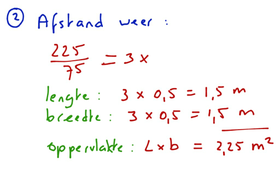 ② Afstand weer :
225/75 = 3 x
lengte : 3 x 0,5 = 1,5 m
breedte : 3 x 0,5 = 1,5 m
oppervlakte : L x b = 2,25 m²